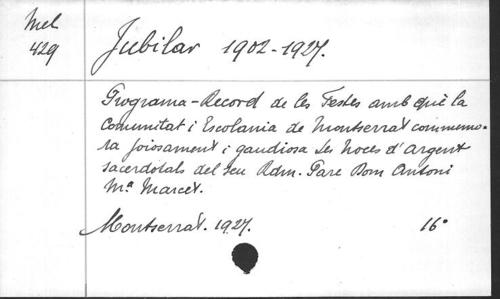 Mel
429
Jubilar 1902-1927.
Programa-Record de les Festes amb què la
Comunitat i Escolania de Montserrat commemo-
ra joiosament i gaudiosa les Noces d'Argent
sacerdotals del seu Rdm. Pare Dom Antoni
Mª Marcet.
Montserrat. 1927. 16º